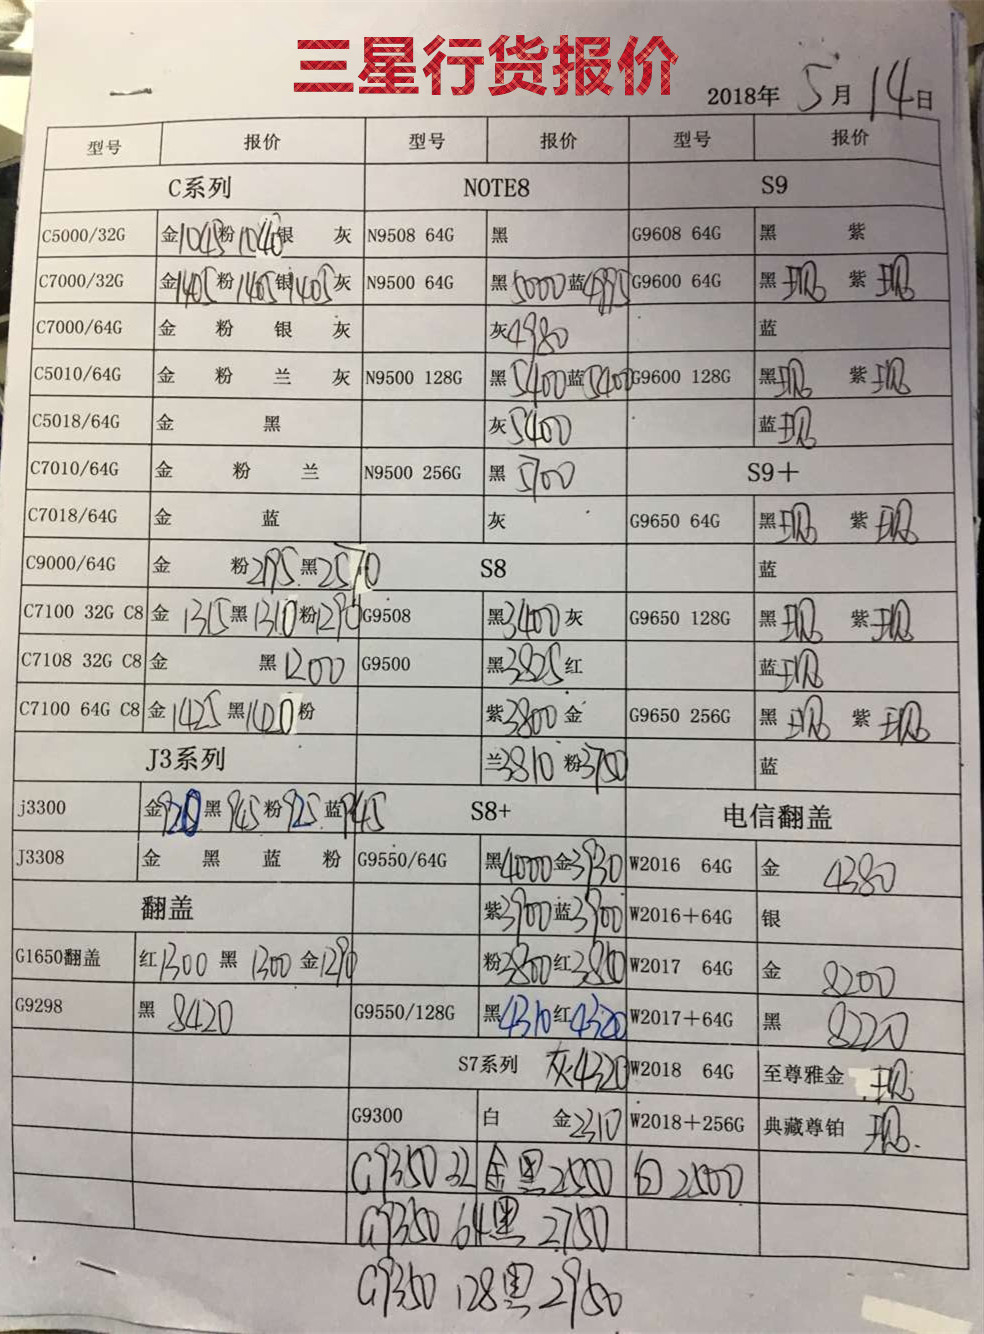 三星行货报价
2018年 5月 14日
型号 报价 型号 报价 型号 报价
C系列 NOTE8 S9
C5000/32G 金1045 粉1040 银 灰 N9508 64G 黑 G9608 64G 黑 紫
C7000/32G 金1405 粉1405 银1405 灰 N9500 64G 黑5000 蓝4995 G9600 64G 黑 现 紫 现
C7000/64G 金 粉 银 灰 灰4980 蓝
C5010/64G 金 粉 兰 灰 N9500 128G 黑5400 蓝5400 G9600 128G 黑现 紫 现
C5018/64G 金 黑 灰5400 蓝现
C7010/64G 金 粉 兰 N9500 256G 黑 5700 S9＋
C7018/64G 金 蓝 灰 G9650 64G 黑现 紫 现
C9000/64G 金 粉 黑2570 S8 蓝
C7100 32G C8 金 1315 黑1310 粉1290 G9508 黑3400 灰 G9650 128G 黑 现 紫现
C7108 32G C8 金 黑 1200 G9500 黑3825 红 蓝现
C7100 64G C8 金 1425 黑1420 粉 紫3800 金 G9650 256G 黑 现 紫 现
J3系列 兰3810 粉3750 蓝
j3300 金920 黑 945 粉 925 蓝945 S8+ 电信翻盖
J3308 金 黑 蓝 粉 G9550/64G 黑4000 金3930 W2016 64G 金 4380
翻盖 紫3900 蓝3900 W2016＋64G 银
G1650翻盖 红1300 黑 1300 金1290 粉3800 红3800 W2017 64G 金 8200
G9298 黑 8420 G9550/128G 黑4310 红4320 W2017＋64G 黑 8220
S7系列 灰4320 W2018 64G 至尊雅金 现
G9300 白 金2310 W2018＋256G 典藏尊铂 现.
G9350 32 金 黑2500 白 2500
G9350 64 黑 2750
G9350 128 黑 2950